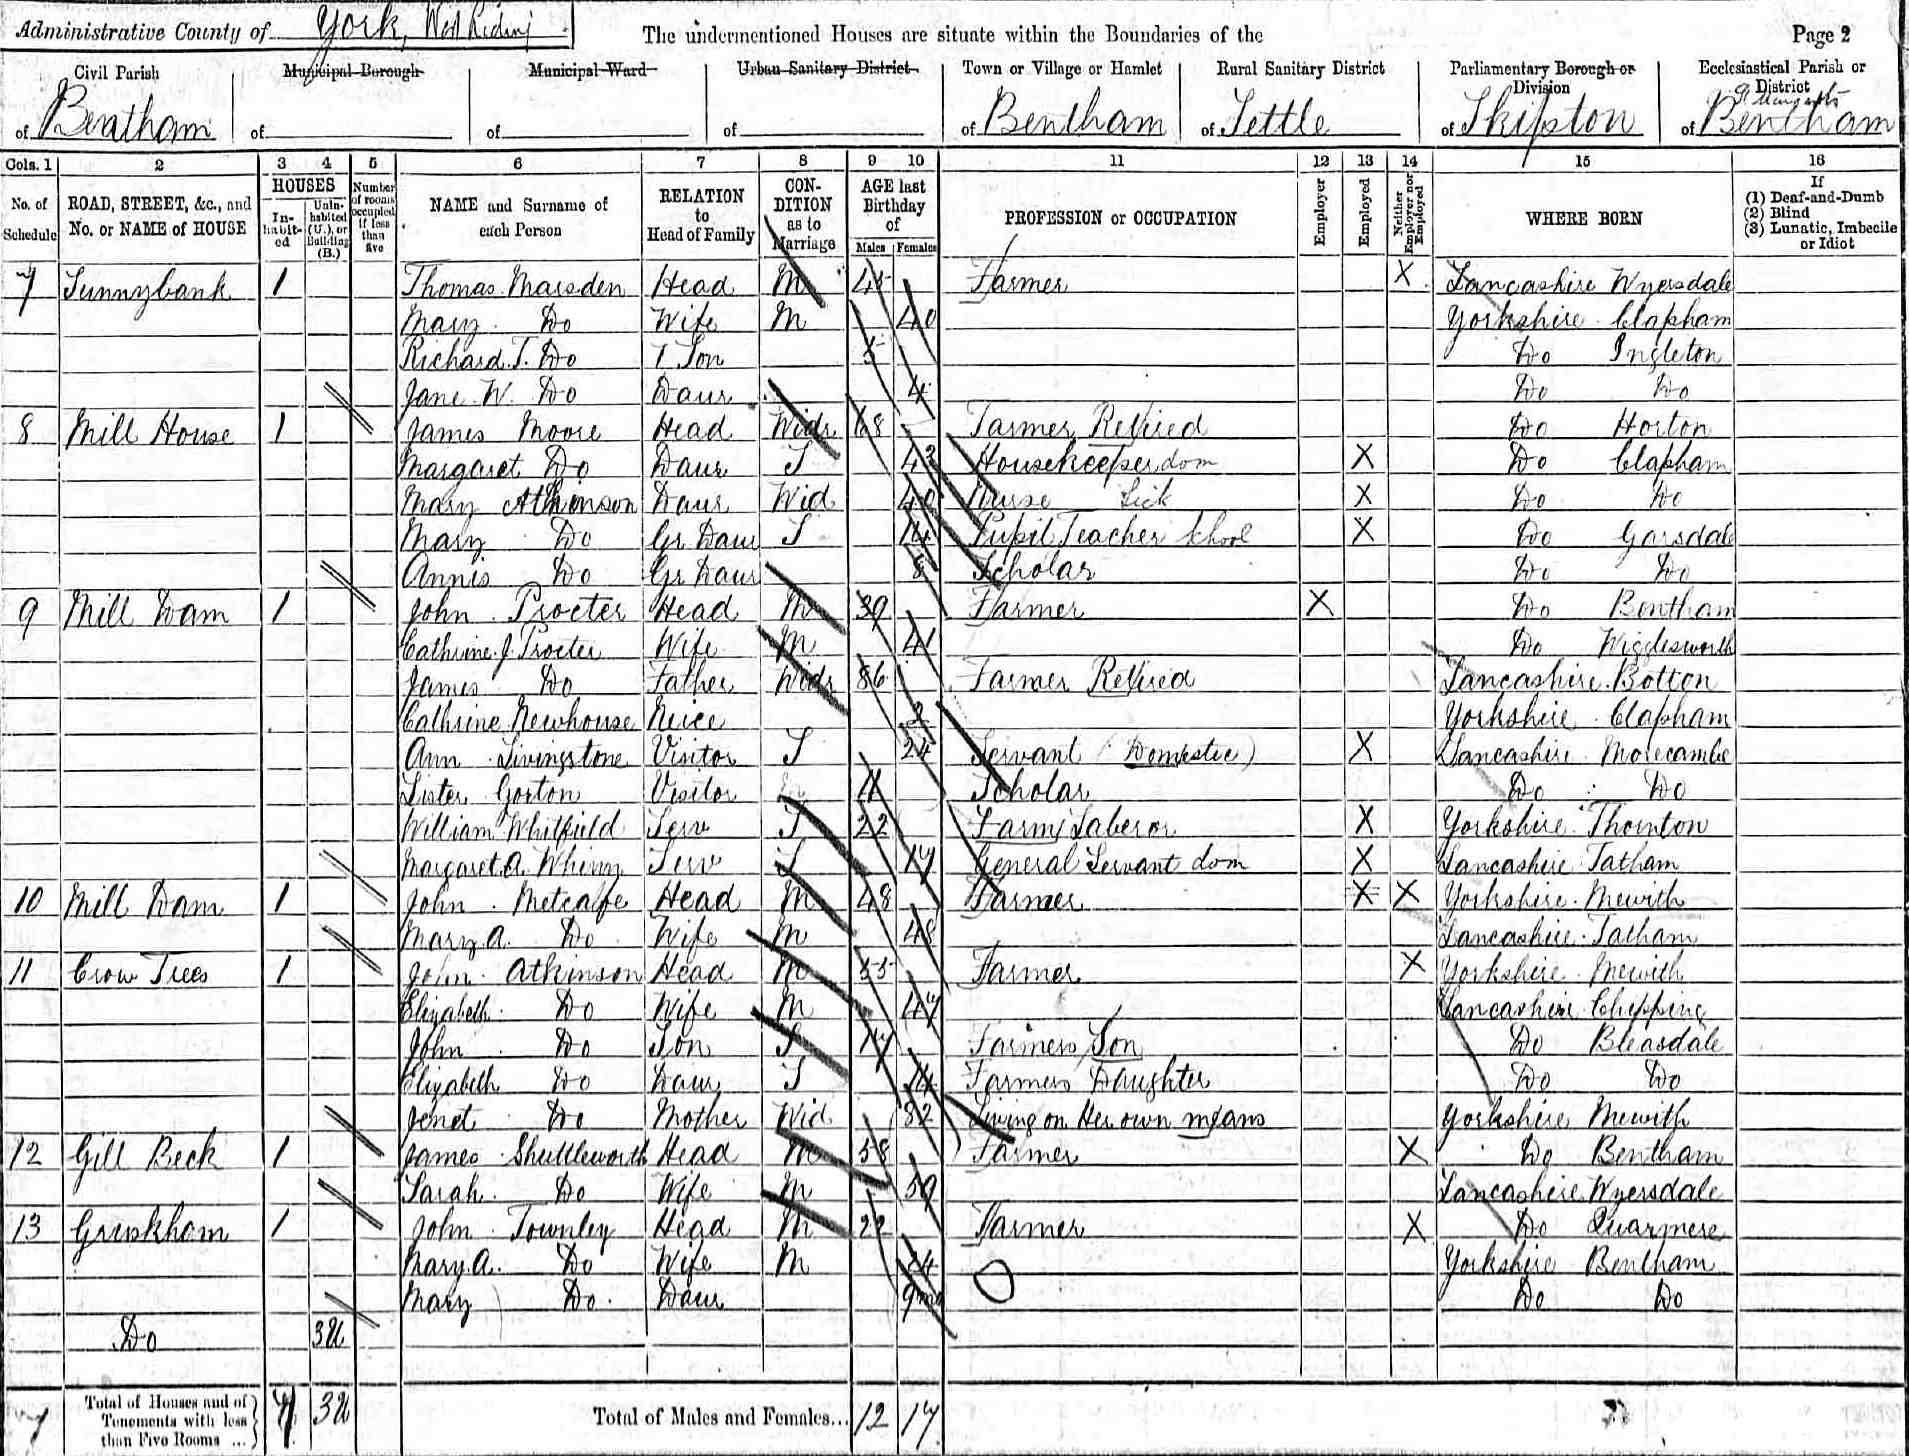 Administrative County of York, West Riding The undermentioned Houses are situate within the Boundaries of the Page 2
Civil Parish of Bentham
Municipal Borough of
Municipal Ward of
Urban Sanitary District of
Town or Village or Hamlet of Bentham
Rural Sanitary District of Settle
Parliamentary Borough or Division of Skipton
Ecclesiastical Parish or District of St Margarets Bentham
Cols. 1 2 3 4 5 6 7 8 9 10 11 12 13 14 15 16
No. of Schedule
ROAD, STREET, &c., and No. or NAME of HOUSE
HOUSES
In-habit-ed
Unin-habited (U.), or Building (B.)
Number of rooms occupied if less than five
NAME and Surname of each Person
RELATION to Head of Family
CON-DITION as to Marriage
AGE last Birthday of
Males Females
PROFESSION or OCCUPATION
Employer
Employed
Neither Employer nor Employed
WHERE BORN
If (1) Deaf-and-Dumb (2) Blind (3) Lunatic, Imbecile or Idiot
7 Sunnybank 1 Thomas Marsden Head M 45 Farmer X Lancashire Wyersdale
Mary Do Wife M 40 Yorkshire Clapham
Richard T. Do Son 5 Do Ingleton
Jane W. Do Daur 4 Do Do
8 Mill House 1 James Moore Head Widr 68 Farmer Retired Do Horton
Margaret Do Daur S 42 Housekeeper dom X Do Clapham
Mary Atkinson Daur Wid 40 Nurse Sick X Do Do
Mary Do Gr Daur S 14 Pupil Teacher School X Do Garsdale
Annis Do Gr Daur 8 Scholar Do Do
9 Mill Dam 1 John Procter Head M 39 Farmer X Do Bentham
Cathrine J Procter Wife M 41 Do Wigglesworth
James Do Father Widr 86 Farmer Retired Lancashire Botton
Cathrine Newhouse Neice 2 Yorkshire Clapham
Ann Livingstone Visitor S 24 Servant (Domestic) X Lancashire Morecambe
Lister Gorton Visitor 11 Scholar Do Do
William Whitfield Serv S 22 Farm Laberor X Yorkshire Thornton
Margaret A. Serv S 17 General Servant dom X Lancashire Tatham
10 Mill Dam 1 John Metcalfe Head M 48 Farmer X X Yorkshire Mewith
Mary A. Do Wife M 48 Lancashire Tatham
11 Crow Trees 1 John Atkinson Head M 55 Farmer X Yorkshire Mewith
Elizabeth Do Wife M 47 Lancashire Chipping
John Do Son S 17 Farmers Son Do Bleasdale
Elizabeth Do Daur S 14 Farmers Daughter Do Do
Jenet Do Mother Wid 82 Living on Her own means Yorkshire Mewith
12 Gill Beck 1 James Shuttleworth Head M 58 Farmer X Do Bentham
Sarah Do Wife M 59 Lancashire Wyersdale
13 Greskham 1 John Townley Head M 22 Farmer X Do Quarmere
Mary A. Do Wife M 24 Yorkshire Bentham
Mary Do Daur 9 mo Do Do
Do 3U
7 Total of Houses and of Tenements with less than Five Rooms ... 7 3U Total of Males and Females... 12 17